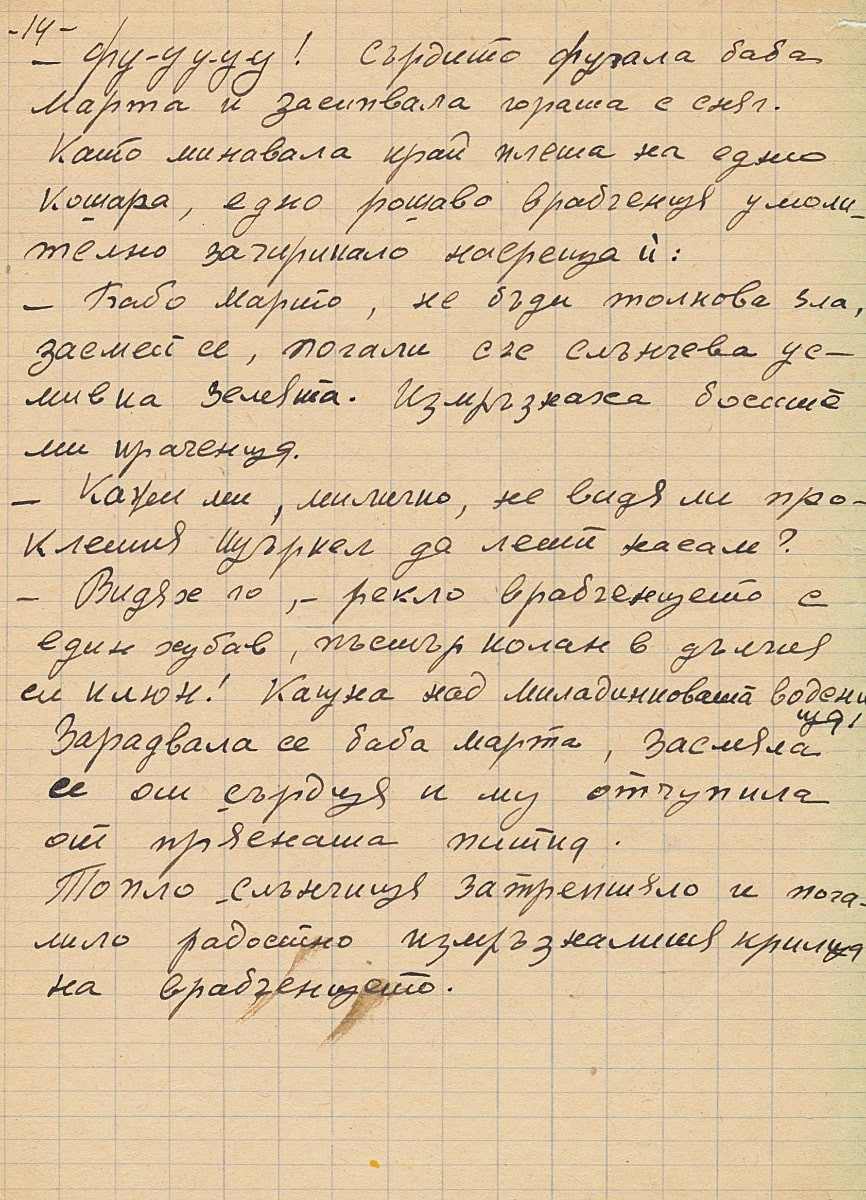 -14-
— Фу-уу-у-у! Сърдито фучала баба
Марта и засипвала гората с сняг.
Като минавала край плета на една
кошара, едно рошаво врабченце умоли-
телно зачирикало насреща й:
— Бабо Марто, не бъди толкова зла,
засмей се, погали със слънчева ус-
мивка земята. Измръзнаха босите
ми краченца.
— Кажи ми, миличко, не видя ли про-
клетия щъркел да лети насам?
— Видях го, — рекло врабченцето с
един хубав, пъстър колан в дългия
си клюн! Кацна над Миладинковата водени
ца!
Зарадвала се баба Марта, засмяла
се от сърце и му отчупила
от прясната питка.
Топло слънчице затрептяло и пога-
лило радостно измръзналите крилца
на врабченцето.